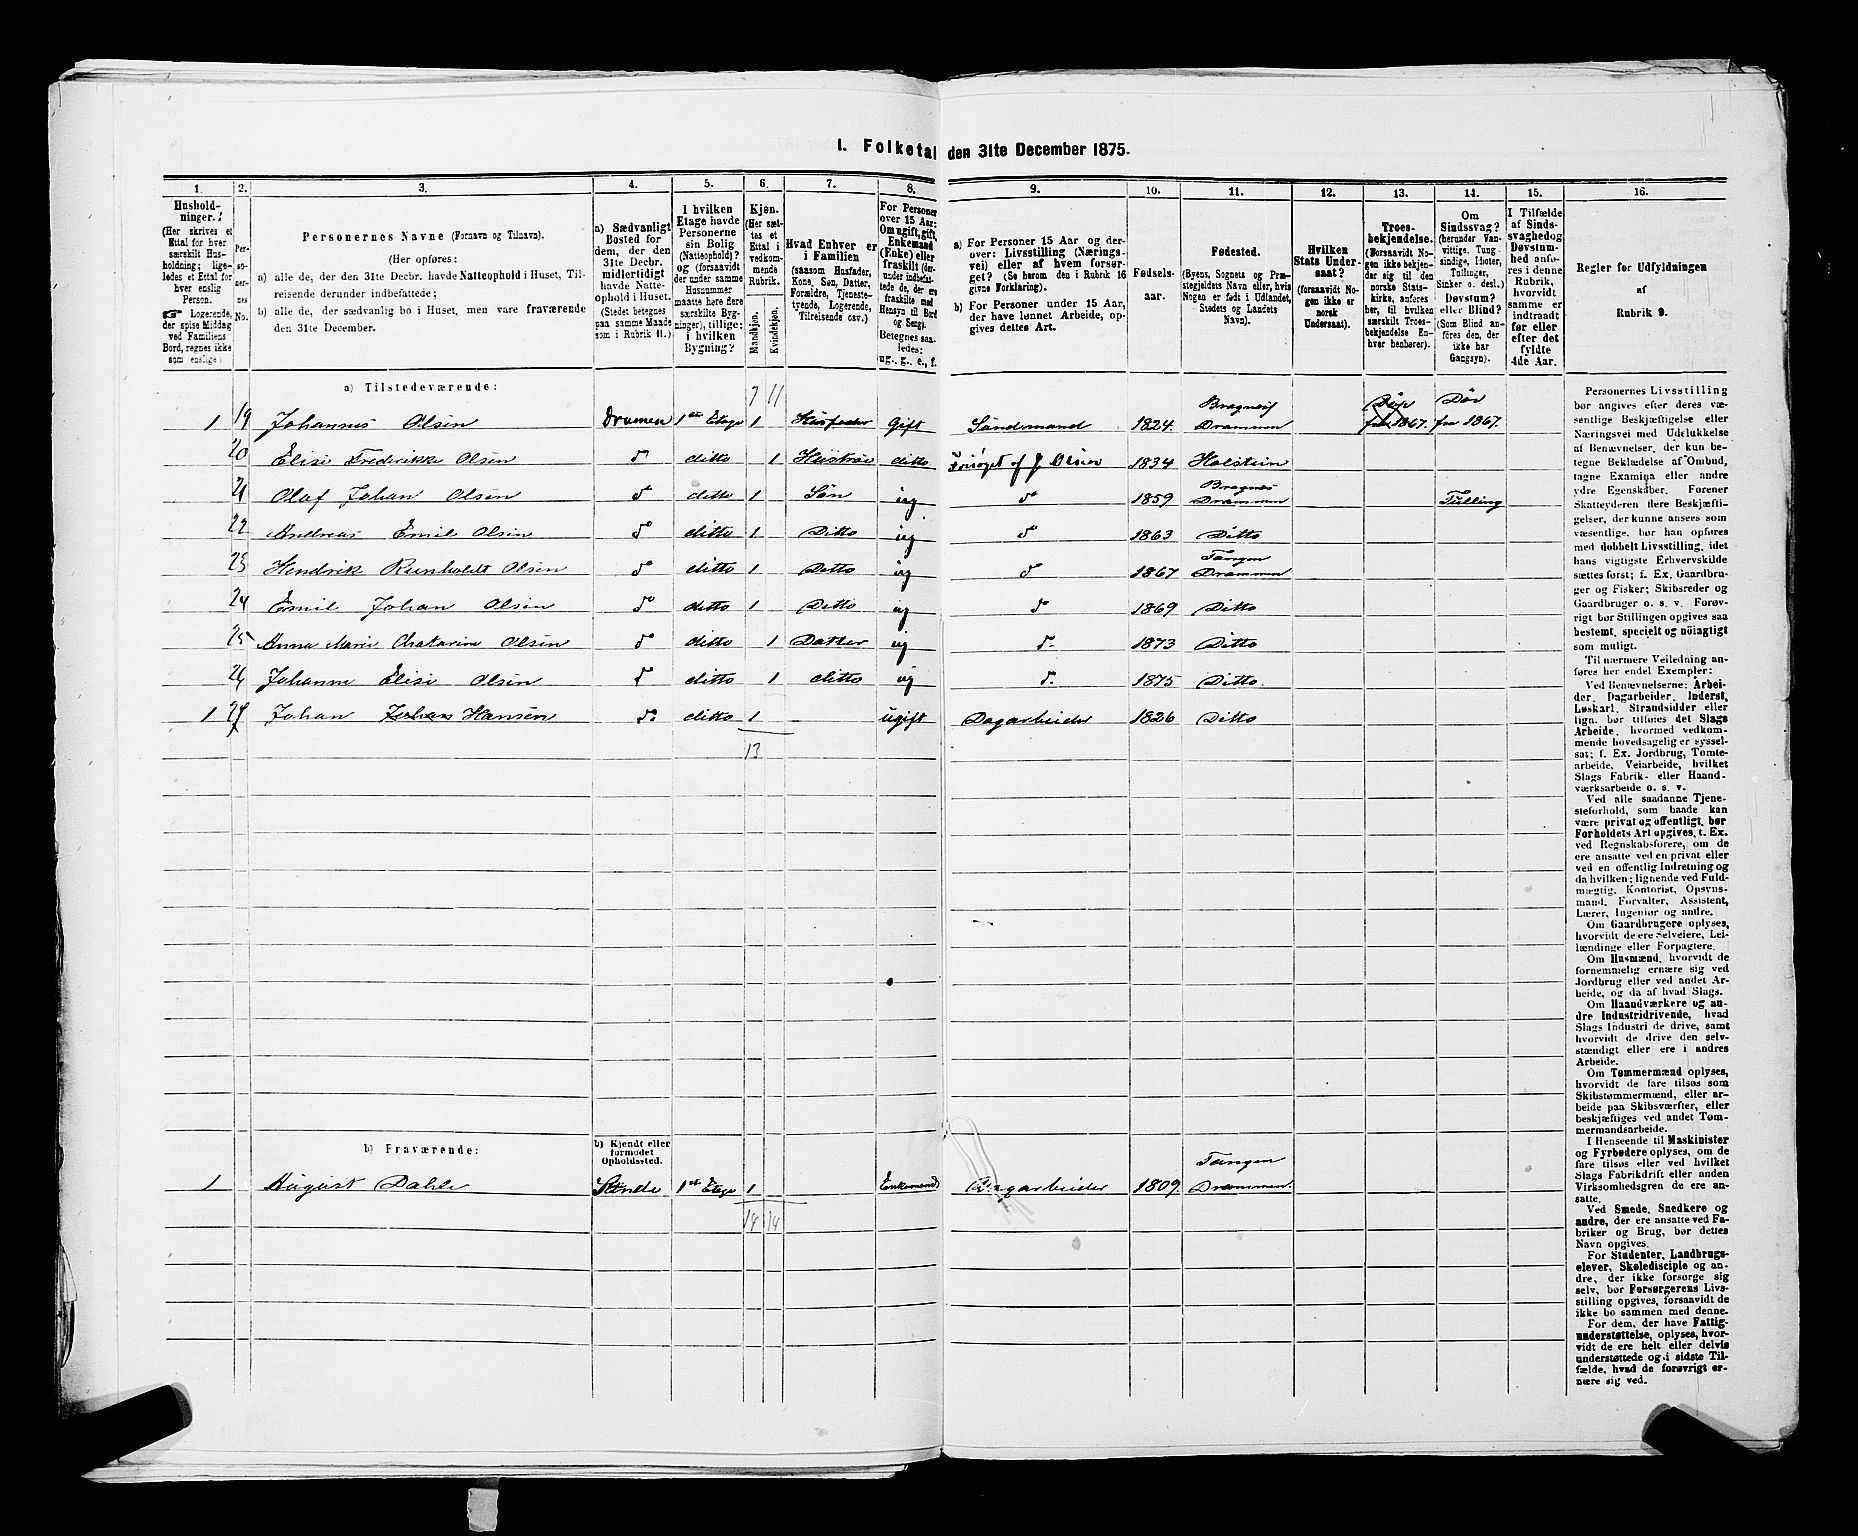 1. Folketal den 31te December 1875.
1. 2. 3. 4. 5. 6. 7. 8. 9. 10. 11. 12. 13. 14. 15. 16.
Hushold-
ninger.
(Her skrives et
Ettal for hver
særskilt Hus-
holdning; lige-
ledes et Ettal for
hver enslig
Person.
Logerende,
der spise Middag
ved Familiens
Bord, regnes ikke
som enslige.)
Per-
so-
ner-
nes
No.
Personernes Navne (Fornavn og Tilnavn).
(Her opføres:
a) alle de, der den 31te Decbr. havde Natteophold i Huset, Til-
reisende derunder indbefattede;
b) alle de, der sædvanlig bo i Huset, men vare fraværende
den 31te December.
a) Sædvanligt
Bosted for
dem, der den
31te Decbr.
midlertidigt
havde Natte-
ophold i Huset.
(Stedet betegnes
paa samme Maade
som i Rubrik 11.)
I hvilken
Etage havde
Personerne
sin Bolig
(Natteophold)?
og (forsaavidt
der under samme
Husnummer
maatte høre flere
særskilte Byg-
ninger), tillige:
i hvilken
Bygning?
Kjøn.
(Her sæt-
tes et
Ettal i
vedkom-
mende
Rubrik.
Mandkjøn.
Kvindekjøn.
Hvad Enhver er
i Familien
(saasom Husfader,
Kone, Søn, Datter,
Forældre, Tjeneste-
tyende, Logerende,
Tilreisende csv.)
For Personer
over 15 Aar:
Om ugift, gift,
Enkemand
(Enke) eller
fraskilt (der-
under indbefat-
tede de, der ere
fraskilte med
Hensyn til Bord
og Seng).
Betegnes saa-
ledes:
ug., g., e., f.
a) For Personer 15 Aar og der-
over: Livsstilling (Nærings-
vei) eller af hvem forsør-
get? (Se herom den i Rubrik 16
givne Forklaring).
b) For Personer under 15 Aar,
der have lønnet Arbeide, op-
gives dettes Art.
Fødsels-
aar.
Fødested.
(Byens, Sognets og Præ-
stegjeldets Navn eller, hvis
Nogen er født i Udlandet,
Stedets og Landets
Navn).
Hvilken
Stats Under-
saat?
(forsaavidt No-
gen ikke er
norsk
Undersaat).
Troes-
bekjendelse.
(Forsaavidt No-
gen ikke bekjen-
der sig til den
norske Stats-
kirke, anføres
her, til hvilken
særskilt Troes-
bekjendelse En-
hver henhører).
Om
Sindssvag?
(herunder Van-
vittige, Tung-
sindige, Idioter,
Tullinger,
Sinker o. desl.)
Døvstum?
eller Blind?
(Som Blind an-
føres den, der
ikke har
Gangsyn).
I Tilfælde
af Sinds-
svaghed og
Døvstum-
hed anfø-
res i denne
Rubrik,
hvorvidt
samme er
indtraadt
før eller
efter det
fyldte
4de Aar.
Regler for Udfyldningen
af
Rubrik 9.
a) Tilstedeværende:
7 11
1 19 Johannes Olsen Dramen 1ste Etage 1 Husfader Gift Søndmand 1824. Bragnes Drammen fra 1867. Døv fra 1867.
20 Elise Frederikke Olsen do ditto 1 Hustroe ditto Forsøget af J Olsen 1834 Holstein
21 Olaf Johan Olsen do ditto 1 Søn ug do 1859 Bragnes Drammen Tulling
22 Andreas Emil Olsen do ditto 1 Ditto ug do 1863 Ditto
23 Hendrik Reinholdt Olsen do ditto 1 Ditto ug do 1867 Tangen Drammen
24 Emil Johan Olsen do ditto 1 Ditto ug do 1869 Ditto
25 Anna Marie Chatarine Olsen do ditto 1 Datter ug do 1873 Ditto
26 Johanne Elise Olsen do ditto 1 ditto ug do 1875 Ditto
1 27 Johan Hansen do ditto 1 ugift Dagarbeider 1826 Ditto
13
b) Fraværende:
b) Kjendt eller
formodet
Opholdssted.
1 August Dahle 1st Etage 1 Enkemand Dagarbeider 1809 Tangen Drammen.
14 14
Personernes Livsstilling
bør angives efter deres væ-
sentlige Beskjæftigelse eller
Næringsvei med Udelukkelse
af Benævnelser, der kun be-
tegne Beklædelse af Ombud,
tagne Examina eller andre
ydre Egenskaber. Forener
Skatteyderen flere Beskjæfti-
gelser, der kunne ansees som
væsentlige, bør han opføres
med dobbelt Livsstilling, idet
hans vigtigste Erhvervskilde
sættes først; f. Ex. Gaardbru-
ger og Fisker; Skibsreder og
Gaardbruger o. s. v. Forøv-
rigt bør Stillingen opgives saa
bestemt, specielt og nöiagtigt
som muligt.
Til nærmere Veiledning an-
føres her endel Exempler:
Ved Benævnelserne: Arbei-
der, Dagarbeider, Inderst,
Løskarl, Strandsidder eller
lign. bør tilføies det Slags
Arbeide, hvormed vedkom-
mende hovedsagelig er syssel-
sat; f. Ex. Jordbrug, Tomte-
arbeide, Veiarbeide, hvilket
Slags Fabrik- eller Haand-
værksarbeide o. s. v.
Ved alle saadanne Tjene-
steforhold, som baade kan
være privat og offentligt, bør
Forholdets Art opgives, t. Ex.
ved Regnskabsførere, om de
ere ansatte ved en privat eller
ved en offentlig Indretning og
da hvilken; lignende ved Fuld-
mægtig, Kontorist, Opsyns-
mand, Forvalter, Assistent,
Lærer, Ingeniør og andre.
Om Gaardbrugere oplyses,
hvorvidt de ere Selveiere, Lei-
lændinge eller Forpagtere.
Om Husmænd, hvorvidt de
fornemmelig ernære sig ved
Jordbrug eller ved andet Ar-
beide, og da af hvad Slags.
Om Haandværkere og an-
dre Industridrivende, hvad
Slags Industri de drive, samt
hvorvidt de drive den selv-
stændigt eller ere i andres
Arbeide.
Om Tømmermænd oplyses,
hvorvidt de fare tilsøs som
Skibstømmermænd, eller ar-
beide paa Skibsværfter, eller
beskjæftiges ved andet Tøm-
mermandsarbeide.
I Henseende til Maskinister
og Fyrbødere oplyses, om de
fare tilsøs eller ved hvilket
Slags Fabrikdrift eller anden
Virksomhedsgren de ere an-
satte.
Ved Smede, Snedkere og
andre, der ere ansatte ved Fa-
briker og Brug, bør dettes
Navn opgives.
For Studenter, Landbrugs-
elever, Skoledisciple og an-
dre, der ikke forsørge sig
selv, bør Forsørgerens Livs-
stilling opgives, forsaavidt de
ikke bo sammen med denne.
For dem, der have Fattig-
understøttelse, oplyses, hvor-
vidt de ere helt eller delvis
understøttede og i sidste Til-
fælde, hvad de forøvrigt er-
nære sig ved.